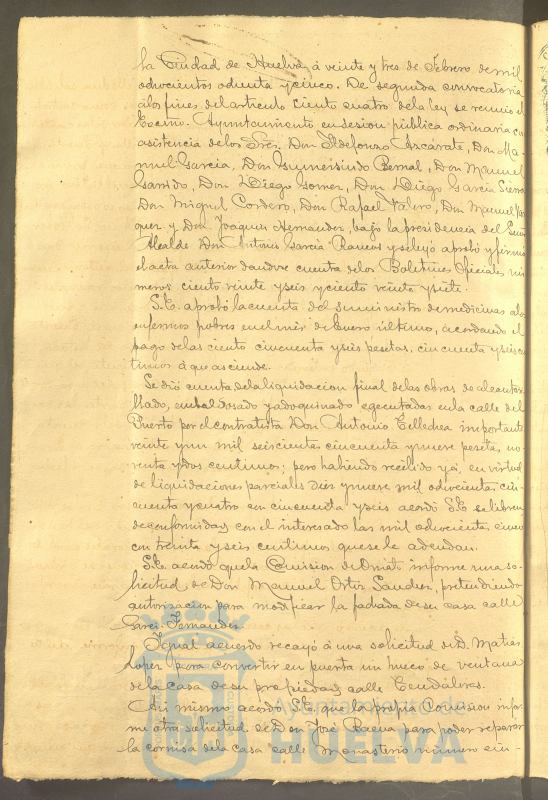 la Ciudad de Huelva, á veinte y tres de Febrero de mil
ochocientos ochenta y cinco. De segunda convocatoria
a los fines del articulo ciento cuatro de la ley se reunio el
Excmo. Ayuntamiento en sesion publica ordinaria con
asistencia de los Sres. Don Ildefonso Azcárate, Don Ma-
nuel Garcia, Don Gumersindo Bernal, Don Manuel
Garrido, Don Diego Gomez, Don Diego Garcia Sierra
Don Miguel Cordero, Don Rafael Valero, Don Manuel
quez y Don Joaquin Hernandez, bajo la presidencia del Señor
Alcalde Don Antonio Garcia Ramos y se leyó aprobó y firmó
el acta anterior dandose cuenta de los Boletines Oficiales nú-
meros ciento veinte y seis y ciento veinte y siete.
S.E. aprobó la cuenta del suministro de medicinas a los
enfermos pobres en el mes de Enero último, acordando el
pago de las ciento cincuenta y seis pesetas, cincuenta y seis cen-
timos á que asciende.
Se dió cuenta de la liquidacion final de las obras de alcantari-
llado, embaldosado y adoquinado egecutadas en la calle del
Puerto por el contratista Don Antonio Tellechea importante
veinte y un mil seiscientas cincuenta y nueve pesetas, no-
venta y dos centimos; pero habiendo recibido ya, en virtud
de liquidaciones parciales diez y nueve mil ochocientas cin-
cuenta y cuatro con cincuenta y seis acordó S.E. se libren
de conformidad con el interesado las mil ochocientas cinco
con treinta y seis centimos que se le adeudan.
S.E. acordó que la Comision de Ornato informe una so-
licitud de Don Manuel Ortiz Sanchez, pretendiendo
autorizacion para modificar la fachada de su casa calle
Garci-Fernandez.
Igual acuerdo recayó á una solicitud de D. Matias
Lopez para convertir en puerta un hueco de ventana
de la casa de su propiedad calle
Asi mismo acordó S.E. que la propia Comision infor-
me otra solicitud de Don José Baeza para poder reparar
la cornisa de la casa calle Monasterio número cin-
Ayuntamiento de
HUELVA